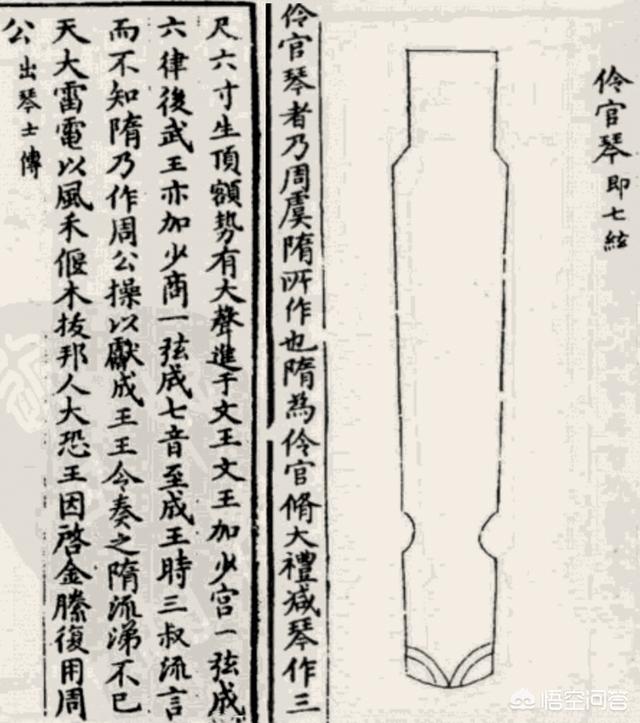 伶官琴即七絃
伶官琴者乃周虞隋所作也隋為伶官脩大禮減琴作三
尺六寸生頂額勢有大聲進于文王文王加少宫一弦成
六律後武王亦加少商一弦成七音至成王時三叔流言
而不知隋乃作周公操以獻成王王令奏之隋流涕不已
天大雷電以風禾偃木拔邦人大恐王因啓金縢復用周
公出琴士傳
悟空问答